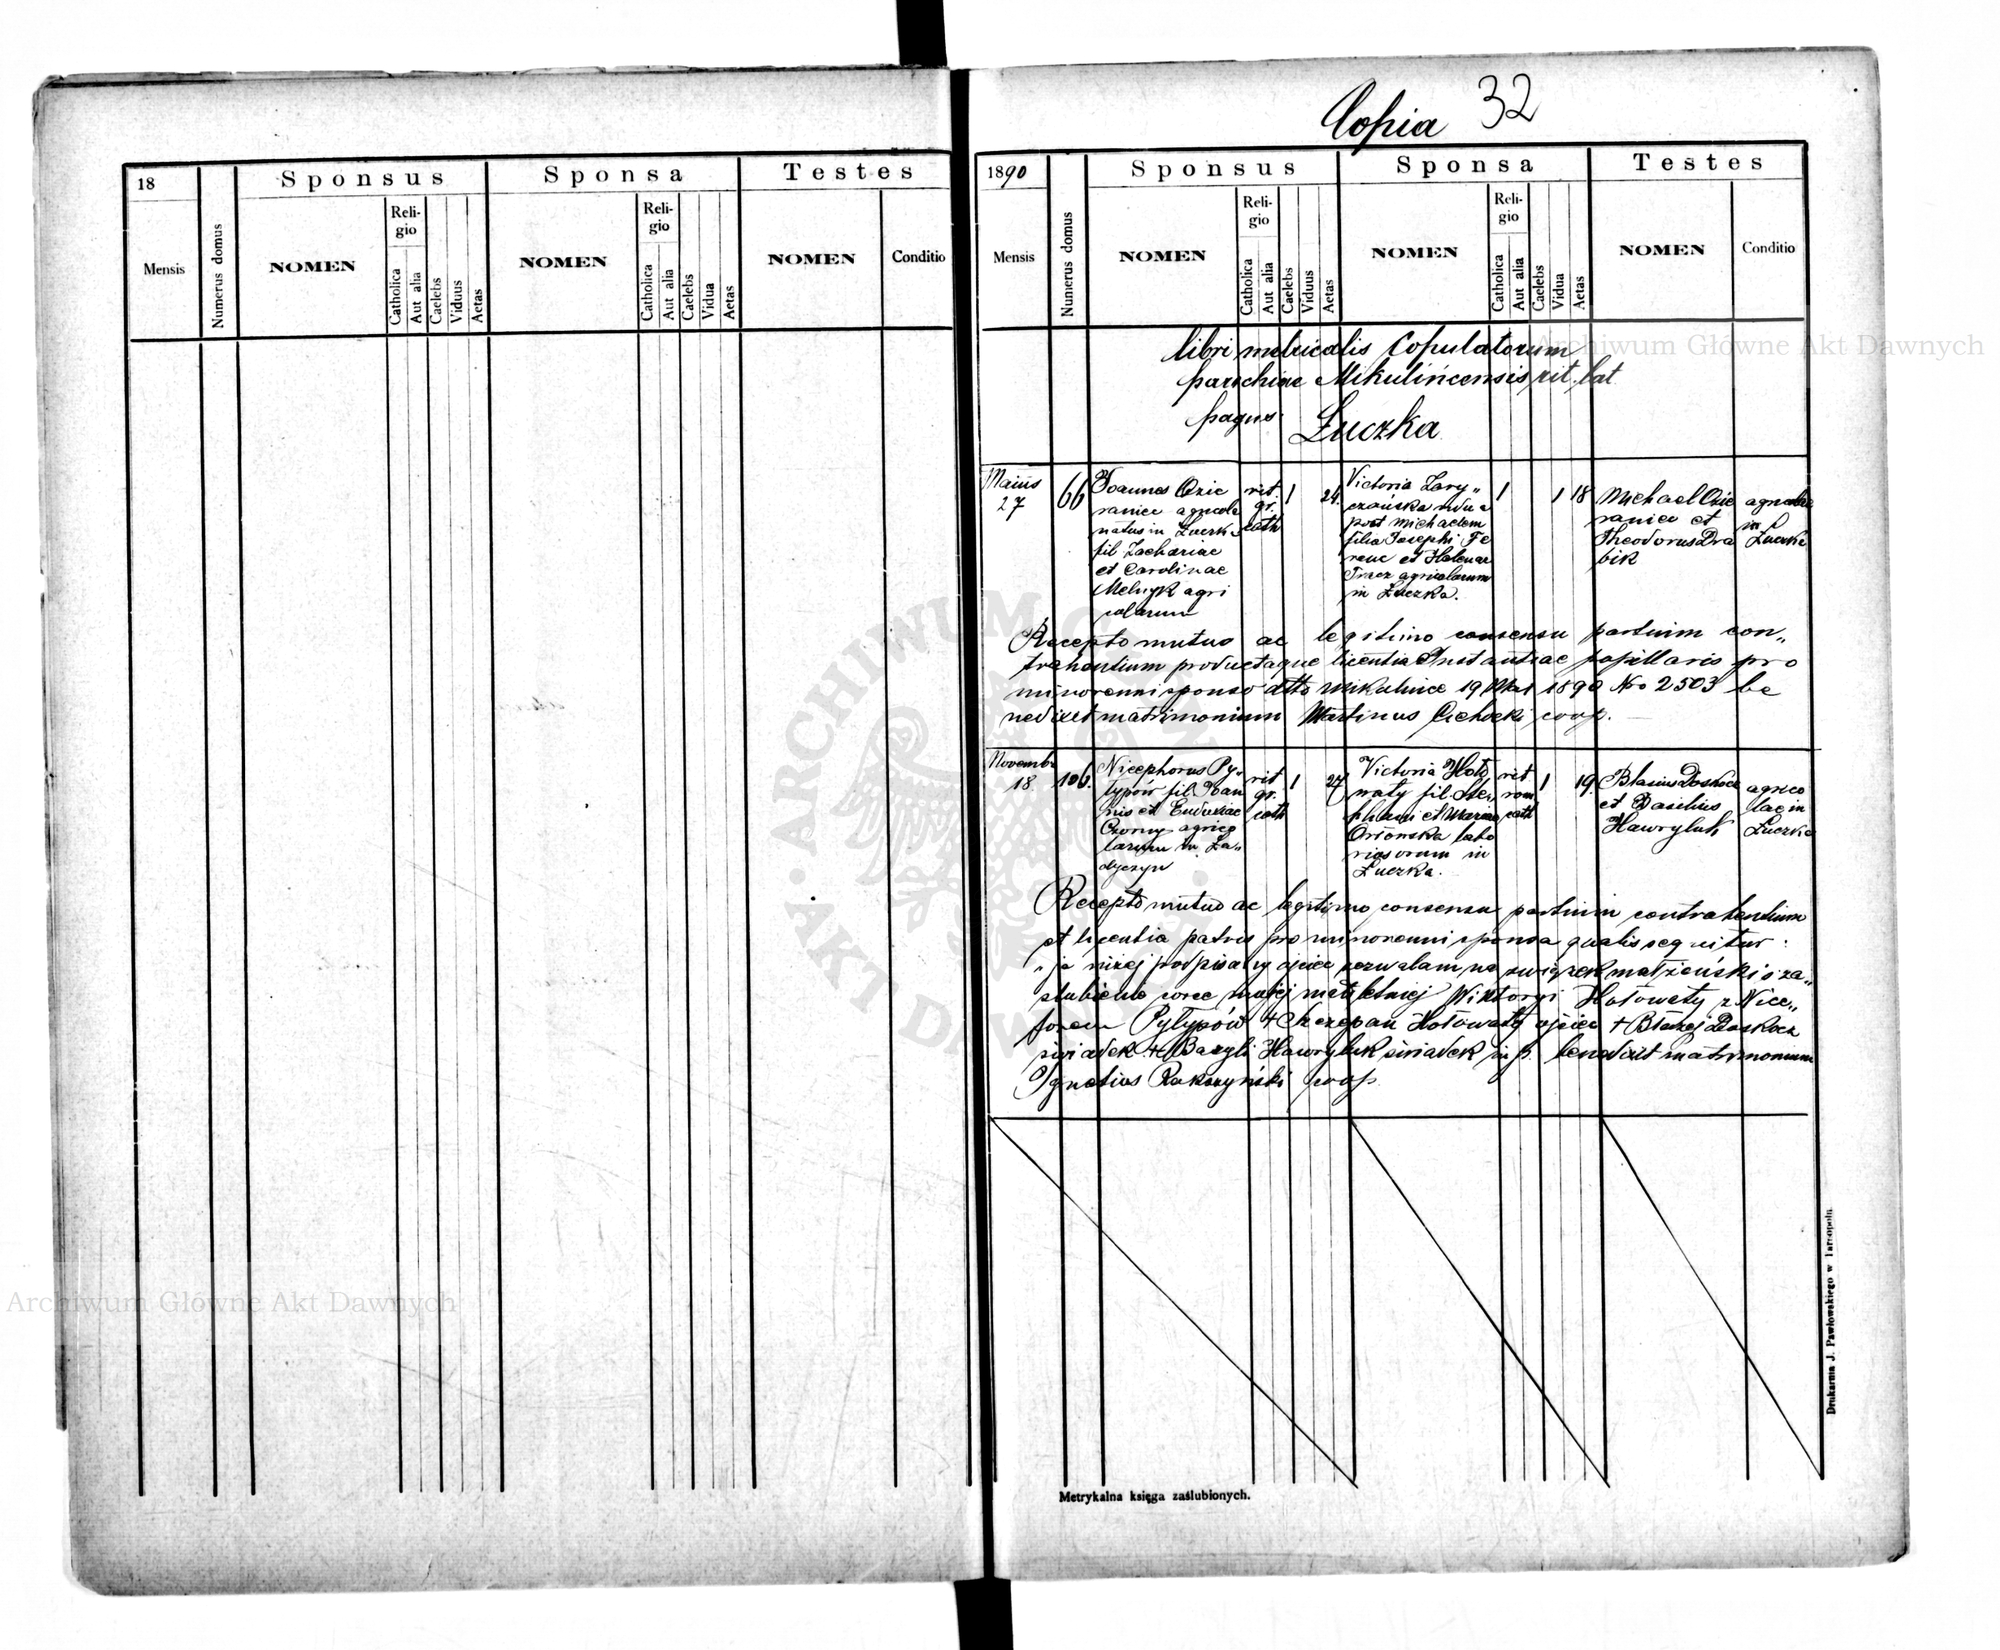 Copia 32
18
Sponsus
Sponsa
Testes
Mensis
Numerus domus
NOMEN
Religio
Catholica
Aut alia
Caelebs
Viduus
Aetas
NOMEN
Religio
Catholica
Aut alia
Caelebs
Vidua
Aetas
NOMEN
Conditio
1890
Sponsus
Sponsa
Testes
Mensis
Numerus domus
NOMEN
Religio
Catholica
Aut alia
Caelebs
Viduus
Aetas
NOMEN
Religio
Catholica
Aut alia
Caelebs
Vidua
Aetas
NOMEN
Conditio
libri metricalis Copulatorum
parochiae Mikulińcensis rit. lat
pagus
Łuczka
Maius
27
66
Joannes Ozie
raniec agricola
natus in Łuczka
fil Zachariae
et Carolinae
Melnyk agri
colarum
rit.
gr.
cath
1
24
Victoria Zary„
czańska vidua
post Michaelem
filia Josephi Fe
renc et Helenae
Tracz agricolarum
in Łuczka.
1
1
18
Michael Ozie
raniec et
Theodorus Dra
bik
agricolae
in
Łuczka
Recepto mutuo ac legitimo consensu partium con„
trahentium productaque licentia Instantiae pupillaris pro
minorenni sponso dtto Mikulince 19 Mai 1890 Nro 2503 be
nedixit matrimonium Martinus Cichocki coop.
Novembr
18
106.
Nicephorus Py„
typów fil. Joan
nis et Eudoxiae
Czorny agrico
larum in Ła„
dyczyn
rit
gr.
cath
1
27
Victoria Hoło
waty fil. Ste„
phani et Mariae
labo
riosorum in
Łuczka.
rit
rom
cath
1
19.
Blasius Doskocz
et Basilius
Hawryluk
agrico
lae in
Łuczka
Recepto mutuo ac legitimo consensu partium contrahentium
et licentia patris pro minorenni sponsa qualis sequitur:
„ja niżej podpisany ojciec zezwalam na związek małżeński i za„
ślubienie córce mojej małoletniej Wiktoryi Hołowaty z Nice„
forem Pytypów + Szczepan Hołowaty ojciec + Błażej Doskocz
świadek + Bazyli Hawryluk świadek m. p. benedixit matrimonium
Ignatius Rakszyński coop.
Metrykalna księga zaślubionych.
Drukarnia J. Pawłowskiego w Tarnopolu.
Archiwum Główne Akt Dawnych
Archiwum Główne Akt Dawnych
ARCHIWUM GŁÓWNE
AKT DAWNYCH